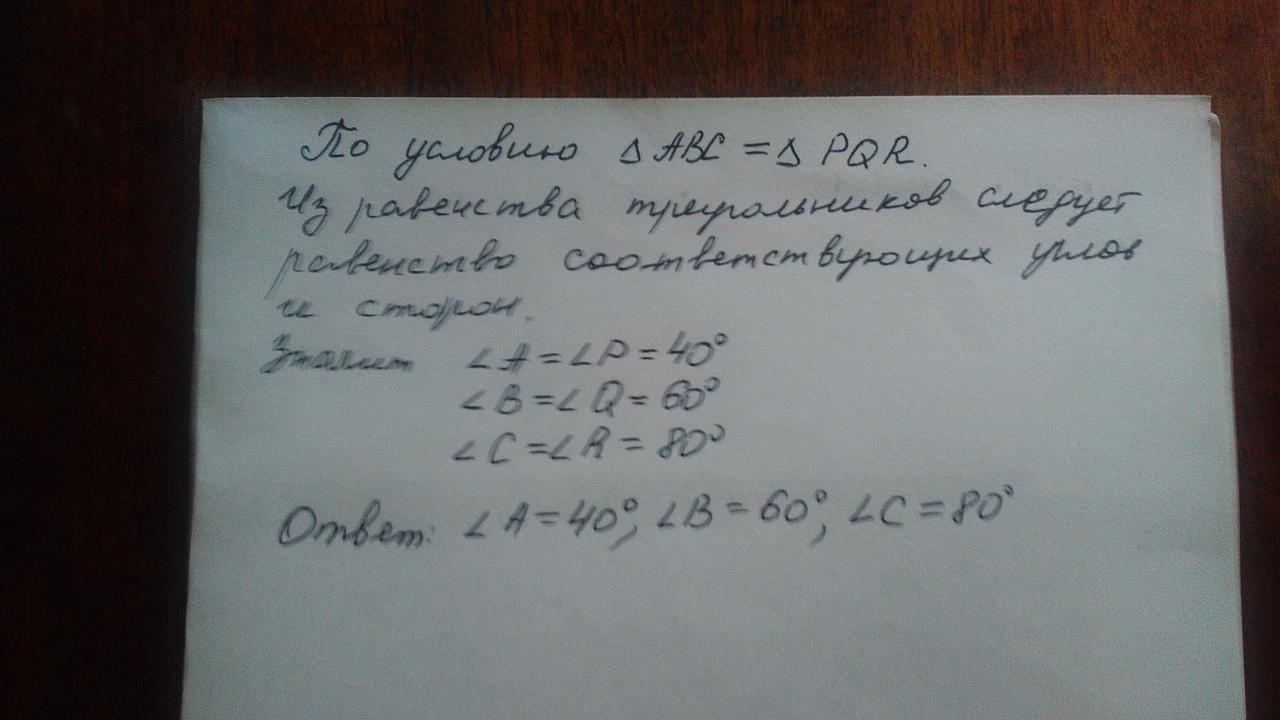 По условию Δ ABC = Δ PQR.
Из равенства треугольников следует
равенство соответствующих углов
и сторон.
Значит ∠A = ∠P = 40°
∠B = ∠Q = 60°
∠C = ∠R = 80°
Ответ: ∠A = 40°, ∠B = 60°, ∠C = 80°